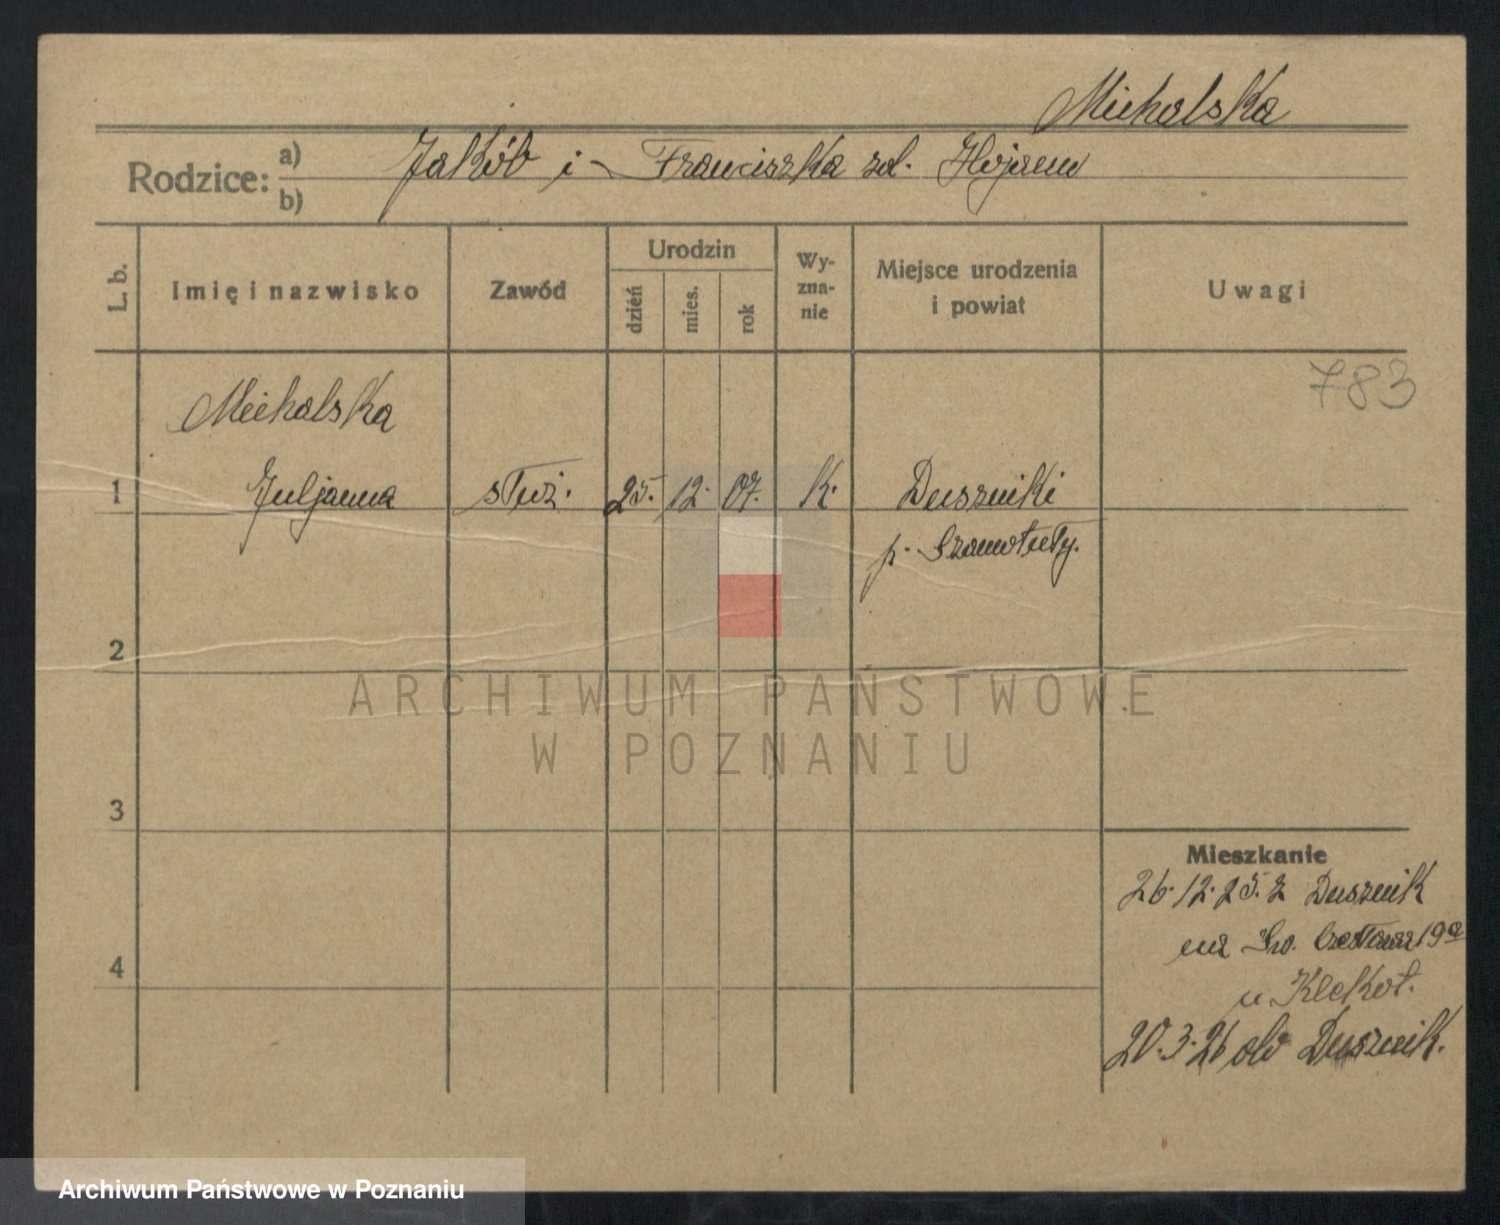 Michalska
Rodzice: a) b) Jakób i Franciszka zd.
L. b.
Imię i nazwisko
Zawód
Urodzin
dzień
mies.
rok
Wy-
zna-
nie
Miejsce urodzenia
i powiat
Uwagi
783
Michalska
1 Juljanna służ. 25. 12. 07. K. Duszniki
p. Szamotuły.
2
3
4
Mieszkanie
26.12.25. z Dusznik
na Św. Czesława 19a
u Klekot.
20.3.26 do Dusznik.
ARCHIWUM PAŃSTWOWE
W POZNANIU
Archiwum Państwowe w Poznaniu